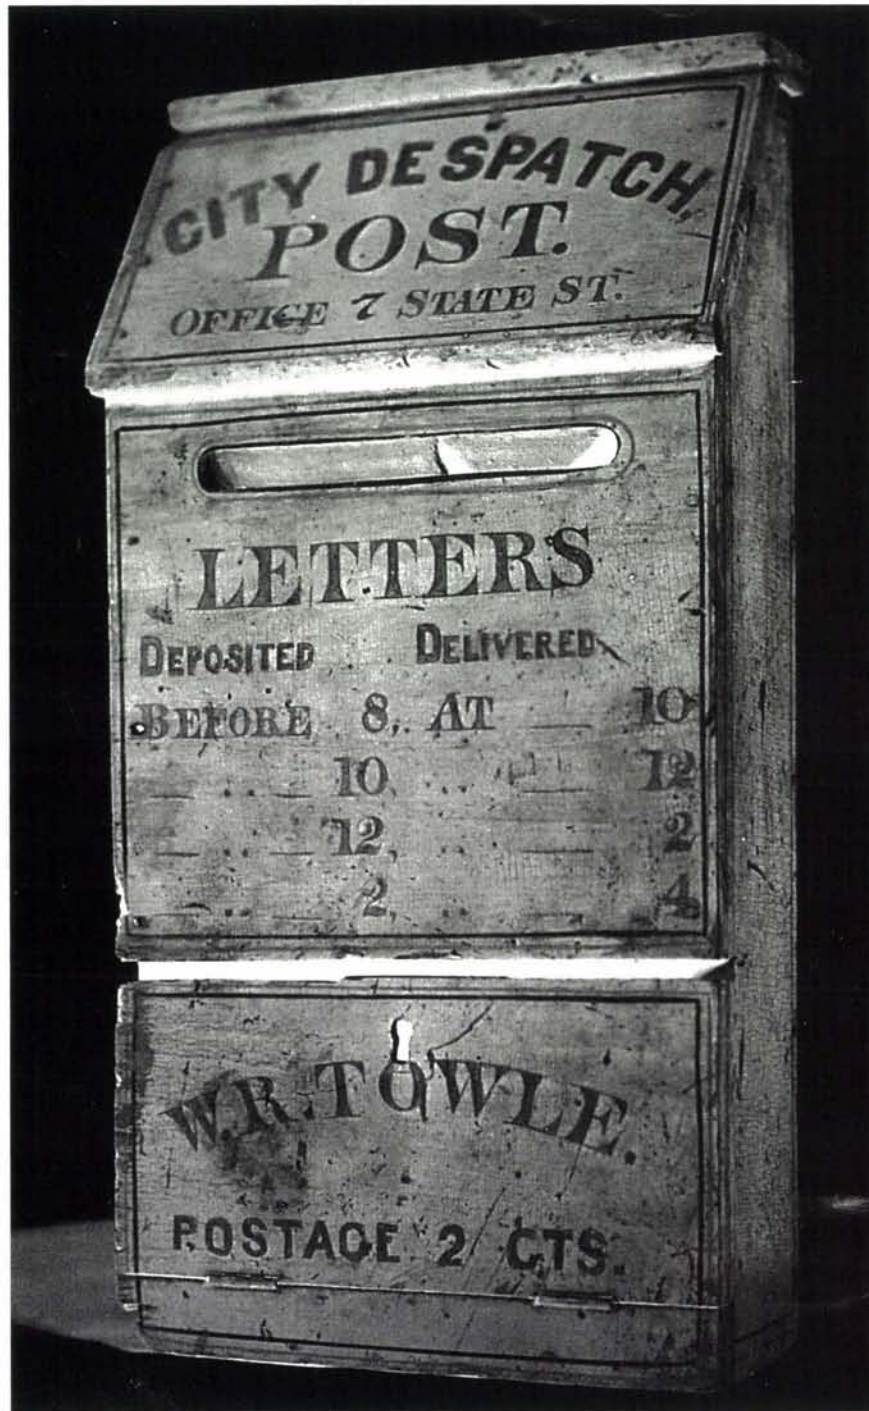 CITY DESPATCH,
POST.
OFFICE 7 STATE ST.
LETTERS
DEPOSITED DELIVERED
BEFORE 8, AT — 10
— .. — 10, .. — 12
— .. — 12, .. — 2
— .. — 2, .. — 4
W.R. TOWLE.
POSTAGE 2 CTS.